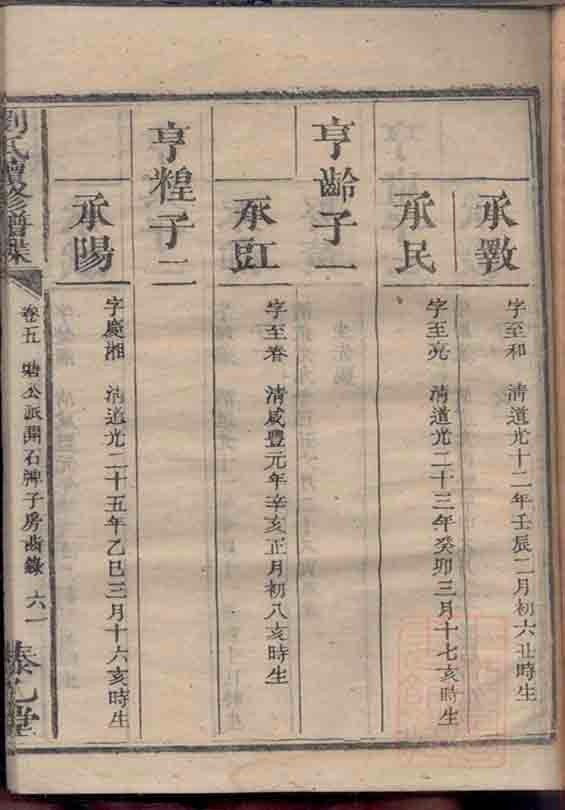 承斅
字至和 清道光十二年壬辰二月初六丑時生
承民
字至亮 清道光二十三年癸卯三月十七亥時生
亨齡子一
承虹
字至春 清咸豐元年辛亥正月初八亥時生
亨糧子二
承陽
字慶湘 清道光二十五年乙巳三月十六亥時生
劉氏續修譜牒
卷五 塘公派開石牌子房齒錄 六一
藜光堂